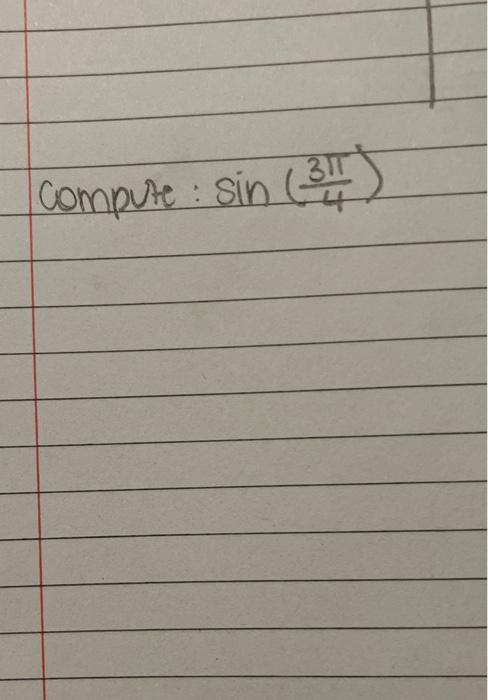 compute : sin (3π/4)